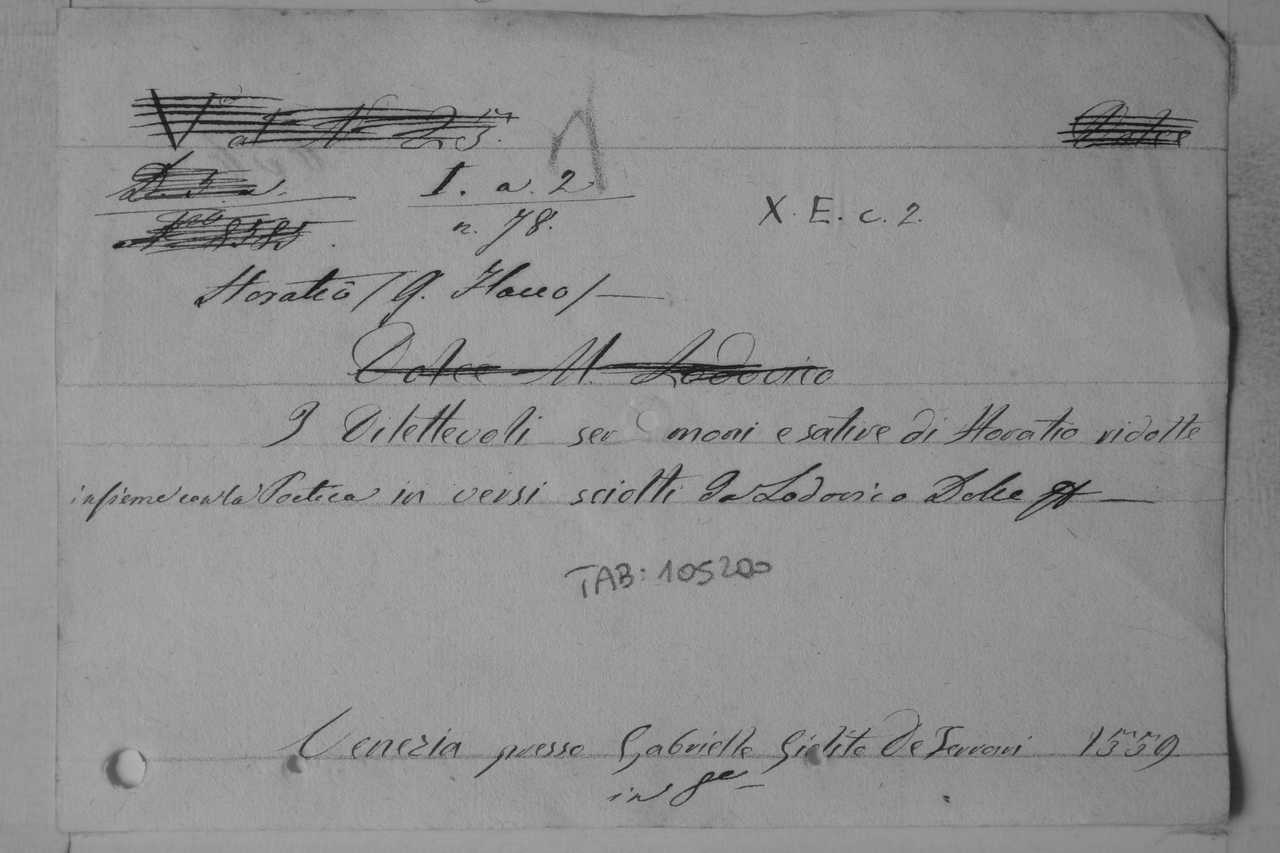 V at N 25. Dolce
I. a. 2 X. E. c. 2.
n. 78.
Horatio / Q. Flacco /
Dolce M. Lodovico
I Dilettevoli sermoni e satire di Horatio ridotte
insieme con la Poetica in versi sciolti Da Lodovico Dolce
TAB: 105200
Venezia presso Gabrielle Giolito De Ferrari 1559
in 8°